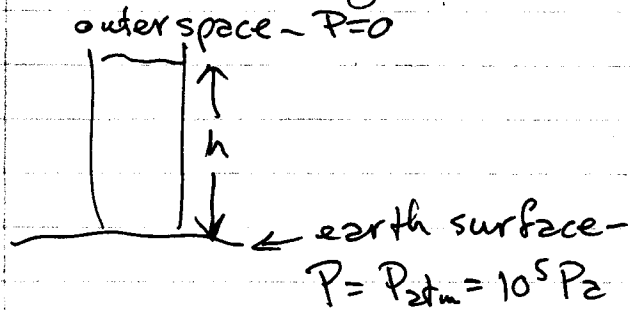 outer space - P=0
h
← earth surface -
P = Patm = 10⁵ Pa